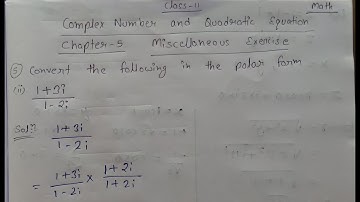 Class-11
Math
Complex Number and Quadratic Equation
Chapter-5 Miscellaneous Exercise
⑤ Convert the following in the polar form
(ii) 1+3i / 1-2i
Solⁿ: 1+3i / 1-2i
= 1+3i / 1-2i × 1+2i / 1+2i